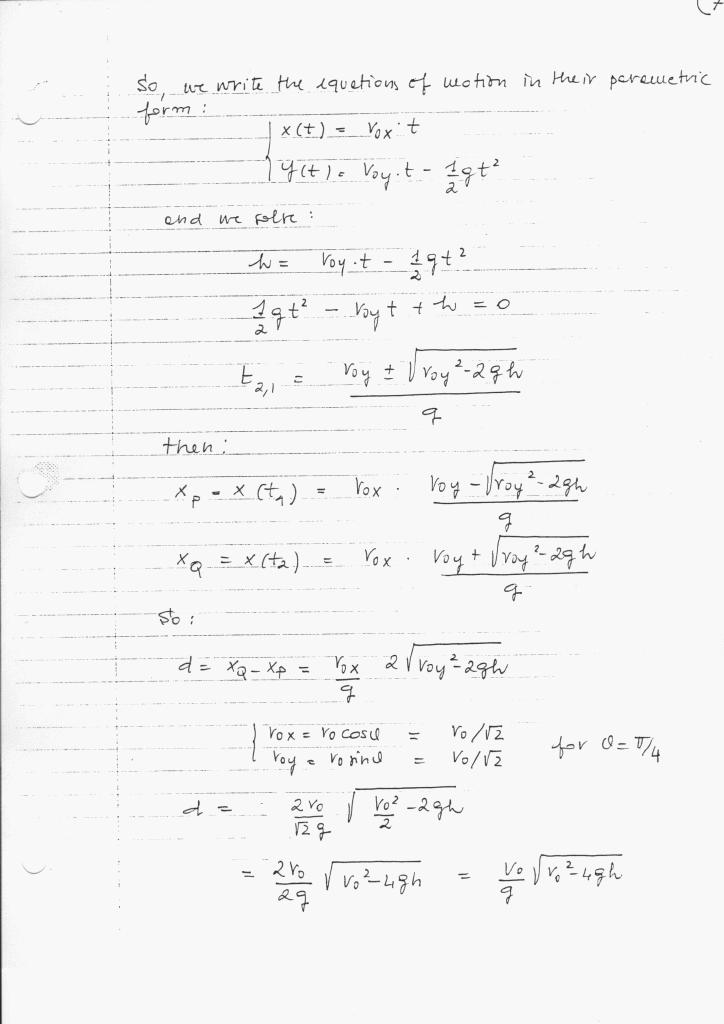 (7
So, we write the equations of motion in their parametric
form :
x(t) = v₀ₓ · t
y(t) = v₀y · t - 1/2 gt²
and we solve :
h = v₀y · t - 1/2 gt²
1/2 gt² - v₀y t + h = 0
t₂,₁ = (v₀y ± √(v₀y² - 2gh)) / g
then :
x_P = x(t₁) = v₀ₓ · (v₀y - √(v₀y² - 2gh)) / g
x_Q = x(t₂) = v₀ₓ · (v₀y + √(v₀y² - 2gh)) / g
So :
d = x_Q - x_P = v₀ₓ/g 2√(v₀y² - 2gh)
v₀ₓ = v₀ cosθ = v₀/√2
v₀y = v₀ sinθ = v₀/√2 for θ = π/4
d = 2v₀/(√2 g) √(v₀²/2 - 2gh)
= 2v₀/2g √(v₀² - 4gh) = v₀/g √(v₀² - 4gh)